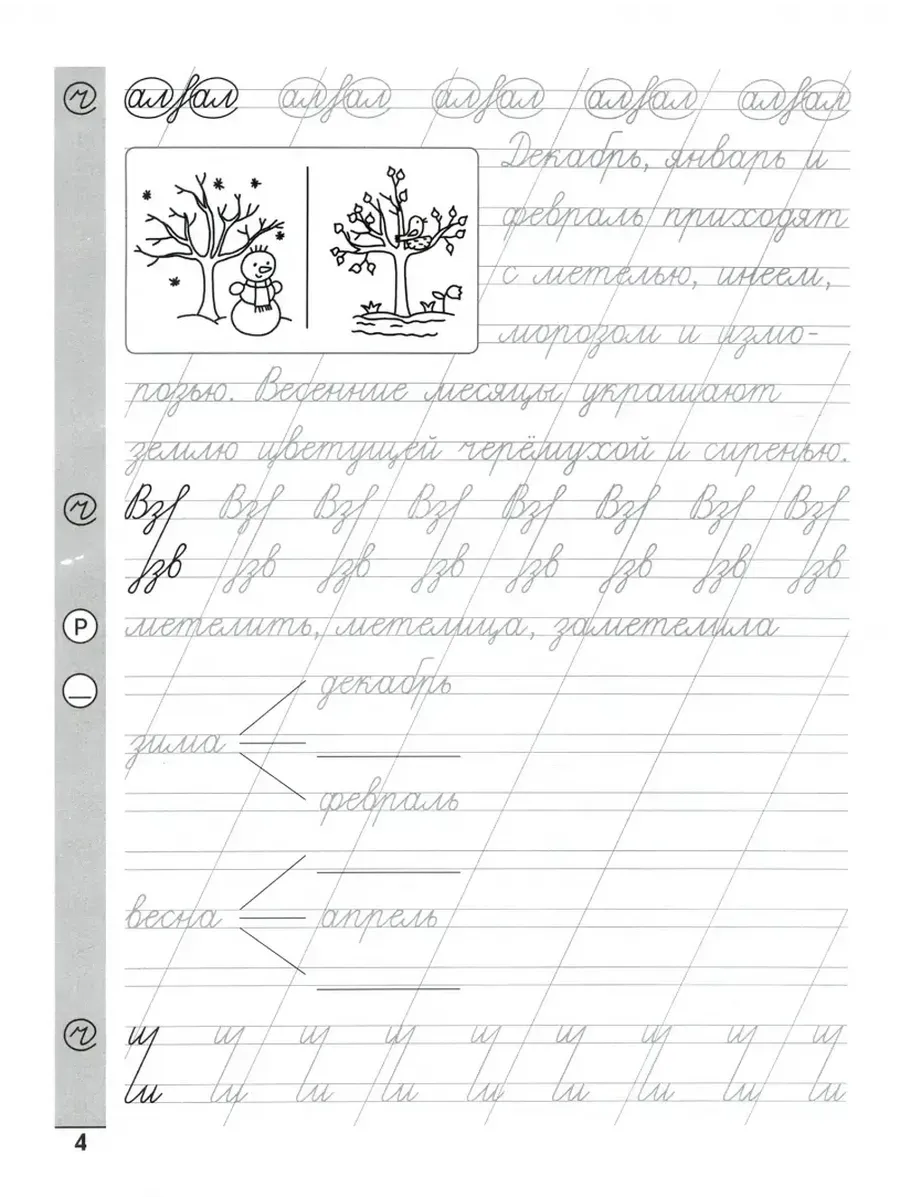 ч алfал алfал алfал алfал алfал
Декабрь, январь и
февраль приходят
с метелью, инеем,
морозом и измо-
розью. Весенние месяцы украшают
землю цветущей черёмухой и сиренью.
ч Взf Взf Взf Взf Взf Взf Взf Взf
fзв fзв fзв fзв fзв fзв fзв fзв
Р метелить, метелица, заметелила
декабрь
зима
февраль
весна апрель
ч щ щ щ щ щ щ щ щ щ
ш ш ш ш ш ш ш ш ш
4